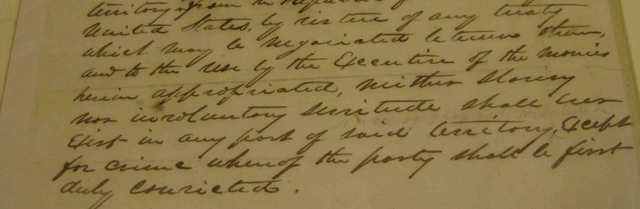 territory from the Republic of
United States, by virtue of any treaty
which may be negotiated between them,
and to the use by the Executive of the monies
herein appropriated, neither slavery
nor involuntary servitude shall ever
exist in any part of said territory, except
for crime whereof the party shall be first
duly convicted.